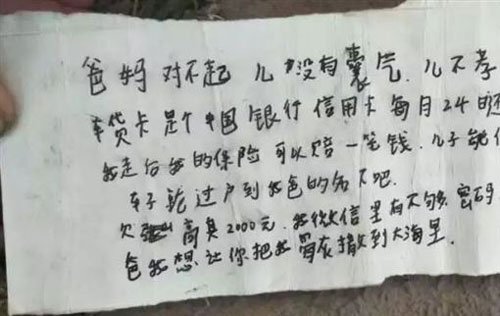 爸妈 对不起 儿 没有囊气. 儿不孝
车贷卡是个中国银行信用卡每月24号还
我走后我的保险可以赔一笔钱. 儿子就
车子就过户到我爸的名下吧.
欠 高臭2000元. 我微信里有不够. 密码
爸我想让你把我骨灰撒到大海里.